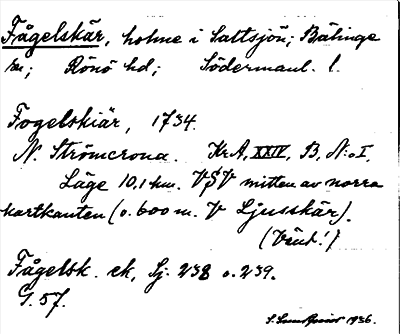 Fågelskär, holme i Saltsjön; Bälinge
sn; Rönö hd; Södermanl. l.
Fogelskiär, 1734.
N. Strömcrona. KrA, XXIV, B, N:o I.
Läge 10,1 km. VSV mitten av norra
kartkanten (o. 600 m. V Ljusskär).
(Vänd!)
Fågelsk. ek, Sj. 238 o. 239.
G. 57.
1936.